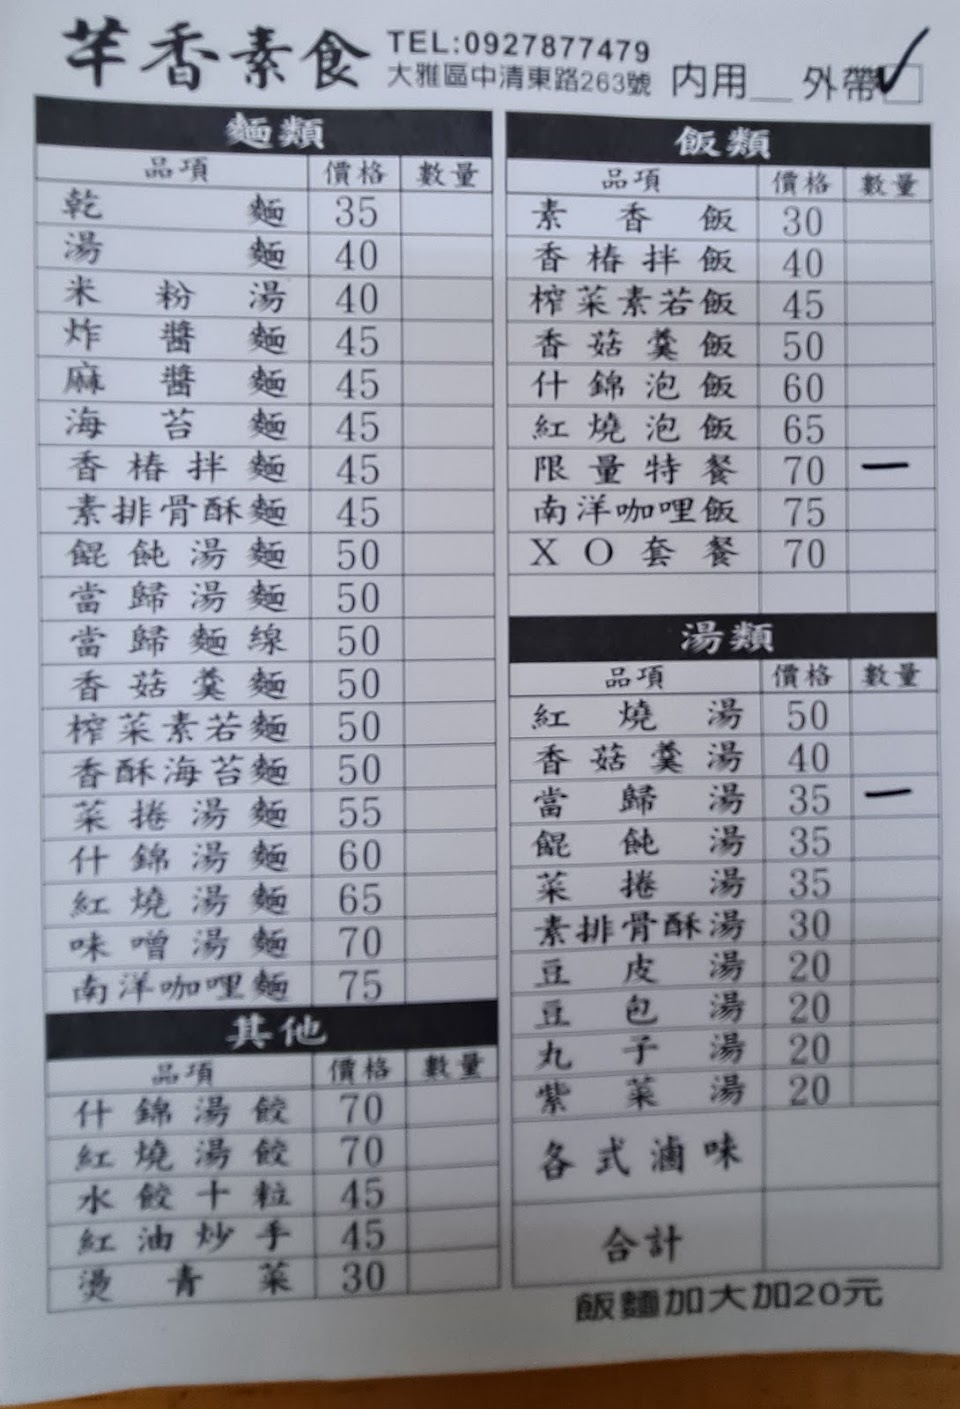 芊香素食 TEL:0927877479
大雅區中清東路263號 內用__ 外帶✓
麵類
品項 價格 數量
乾麵 35
湯麵 40
米粉湯 40
炸醬麵 45
麻醬麵 45
海苔麵 45
香椿拌麵 45
素排骨酥麵 45
餛飩湯麵 50
當歸湯麵 50
當歸麵線 50
香菇羹麵 50
榨菜素若麵 50
香酥海苔麵 50
菜捲湯麵 55
什錦湯麵 60
紅燒湯麵 65
味噌湯麵 70
南洋咖哩麵 75
其他
品項 價格 數量
什錦湯餃 70
紅燒湯餃 70
水餃十粒 45
紅油炒手 45
燙青菜 30
飯類
品項 價格 數量
素香飯 30
香椿拌飯 40
榨菜素若飯 45
香菇羹飯 50
什錦泡飯 60
紅燒泡飯 65
限量特餐 70 一
南洋咖哩飯 75
XO套餐 70
湯類
品項 價格 數量
紅燒湯 50
香菇羹湯 40
當歸湯 35 一
餛飩湯 35
菜捲湯 35
素排骨酥湯 30
豆皮湯 20
豆包湯 20
丸子湯 20
紫菜湯 20
各式滷味
合計
飯麵加大加20元